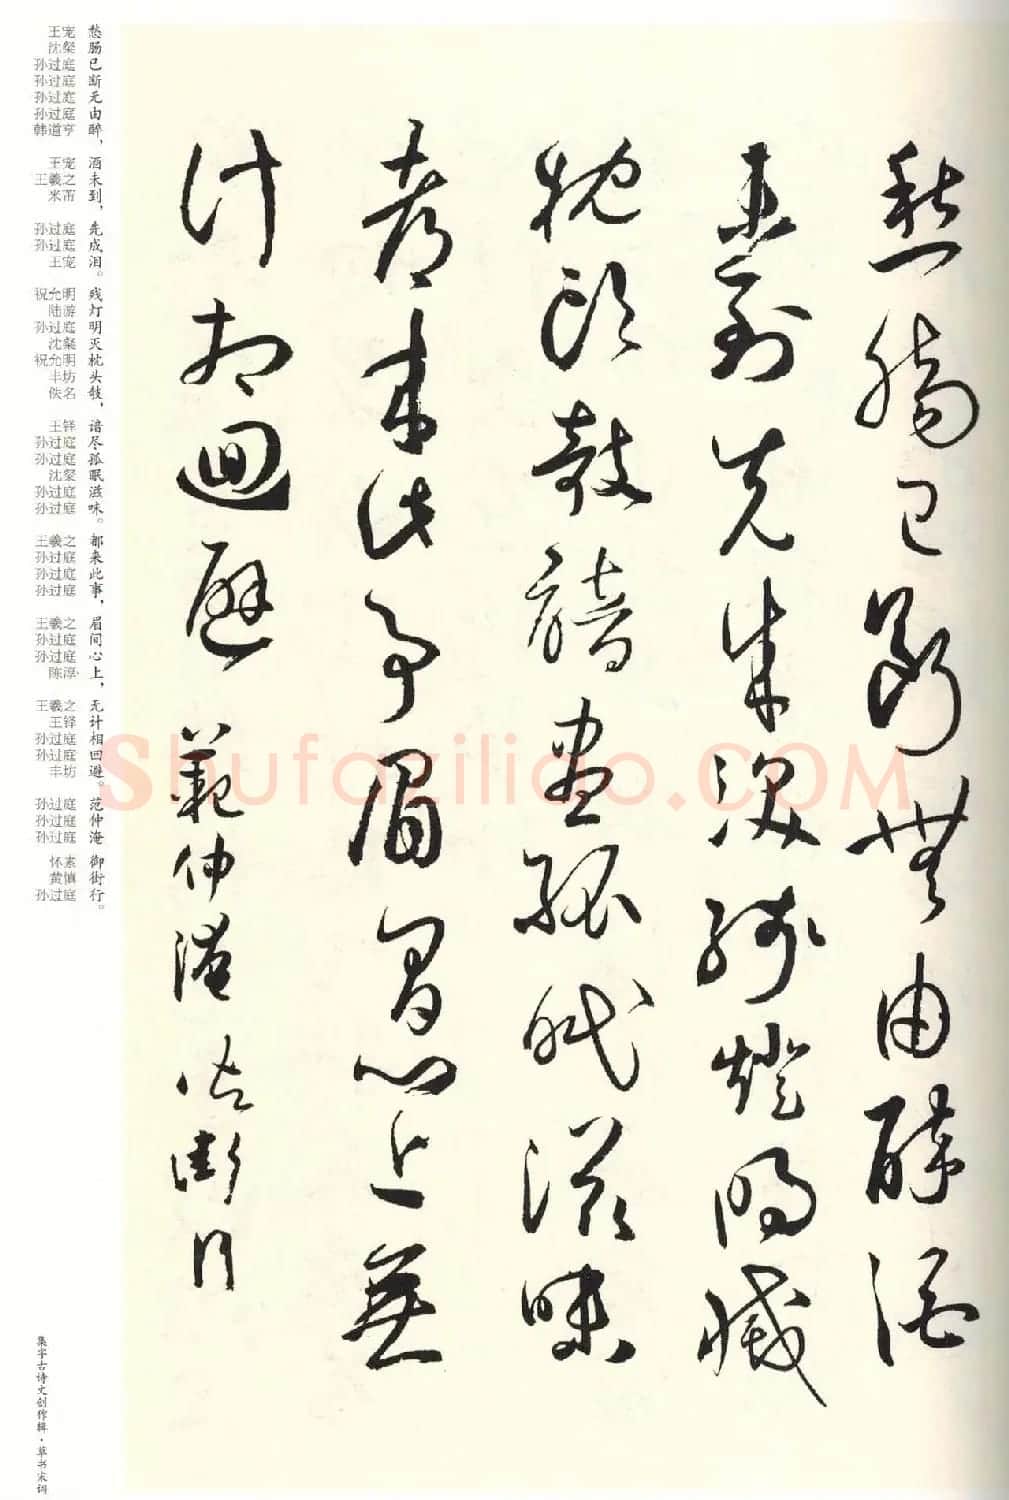 愁腸已斷無由醉酒
未到先成淚殘燈明滅
枕頭攲諳盡孤眠滋味
都來此事眉間心上無
計相迴避 範仲淹 御街行
愁肠已断无由醉，酒未到，先成泪。残灯明灭枕头攲，谙尽孤眠滋味。都来此事，眉间心上，无计相回避。范仲淹御街行。
王宠
沈粲
孙过庭
孙过庭
孙过庭
孙过庭
韩道亨
王宠
王羲之
米芾
孙过庭
孙过庭
王宠
祝允明
陆游
孙过庭
沈粲
祝允明
丰坊
佚名
王铎
孙过庭
孙过庭
沈粲
孙过庭
孙过庭
王羲之
孙过庭
孙过庭
孙过庭
王羲之
孙过庭
孙过庭
陈淳
王羲之
王铎
孙过庭
孙过庭
丰坊
孙过庭
孙过庭
孙过庭
怀素
黄慎
孙过庭
集字古诗文创作辑·草书宋词
Shufaziliao.COM